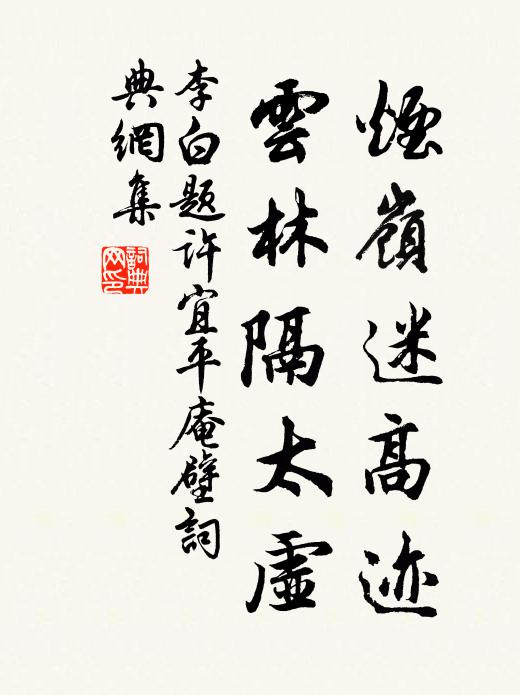 煙嶺迷高迹
雲林隔太虛
李白題許宜平庵壁詞
典網集
詞典网印